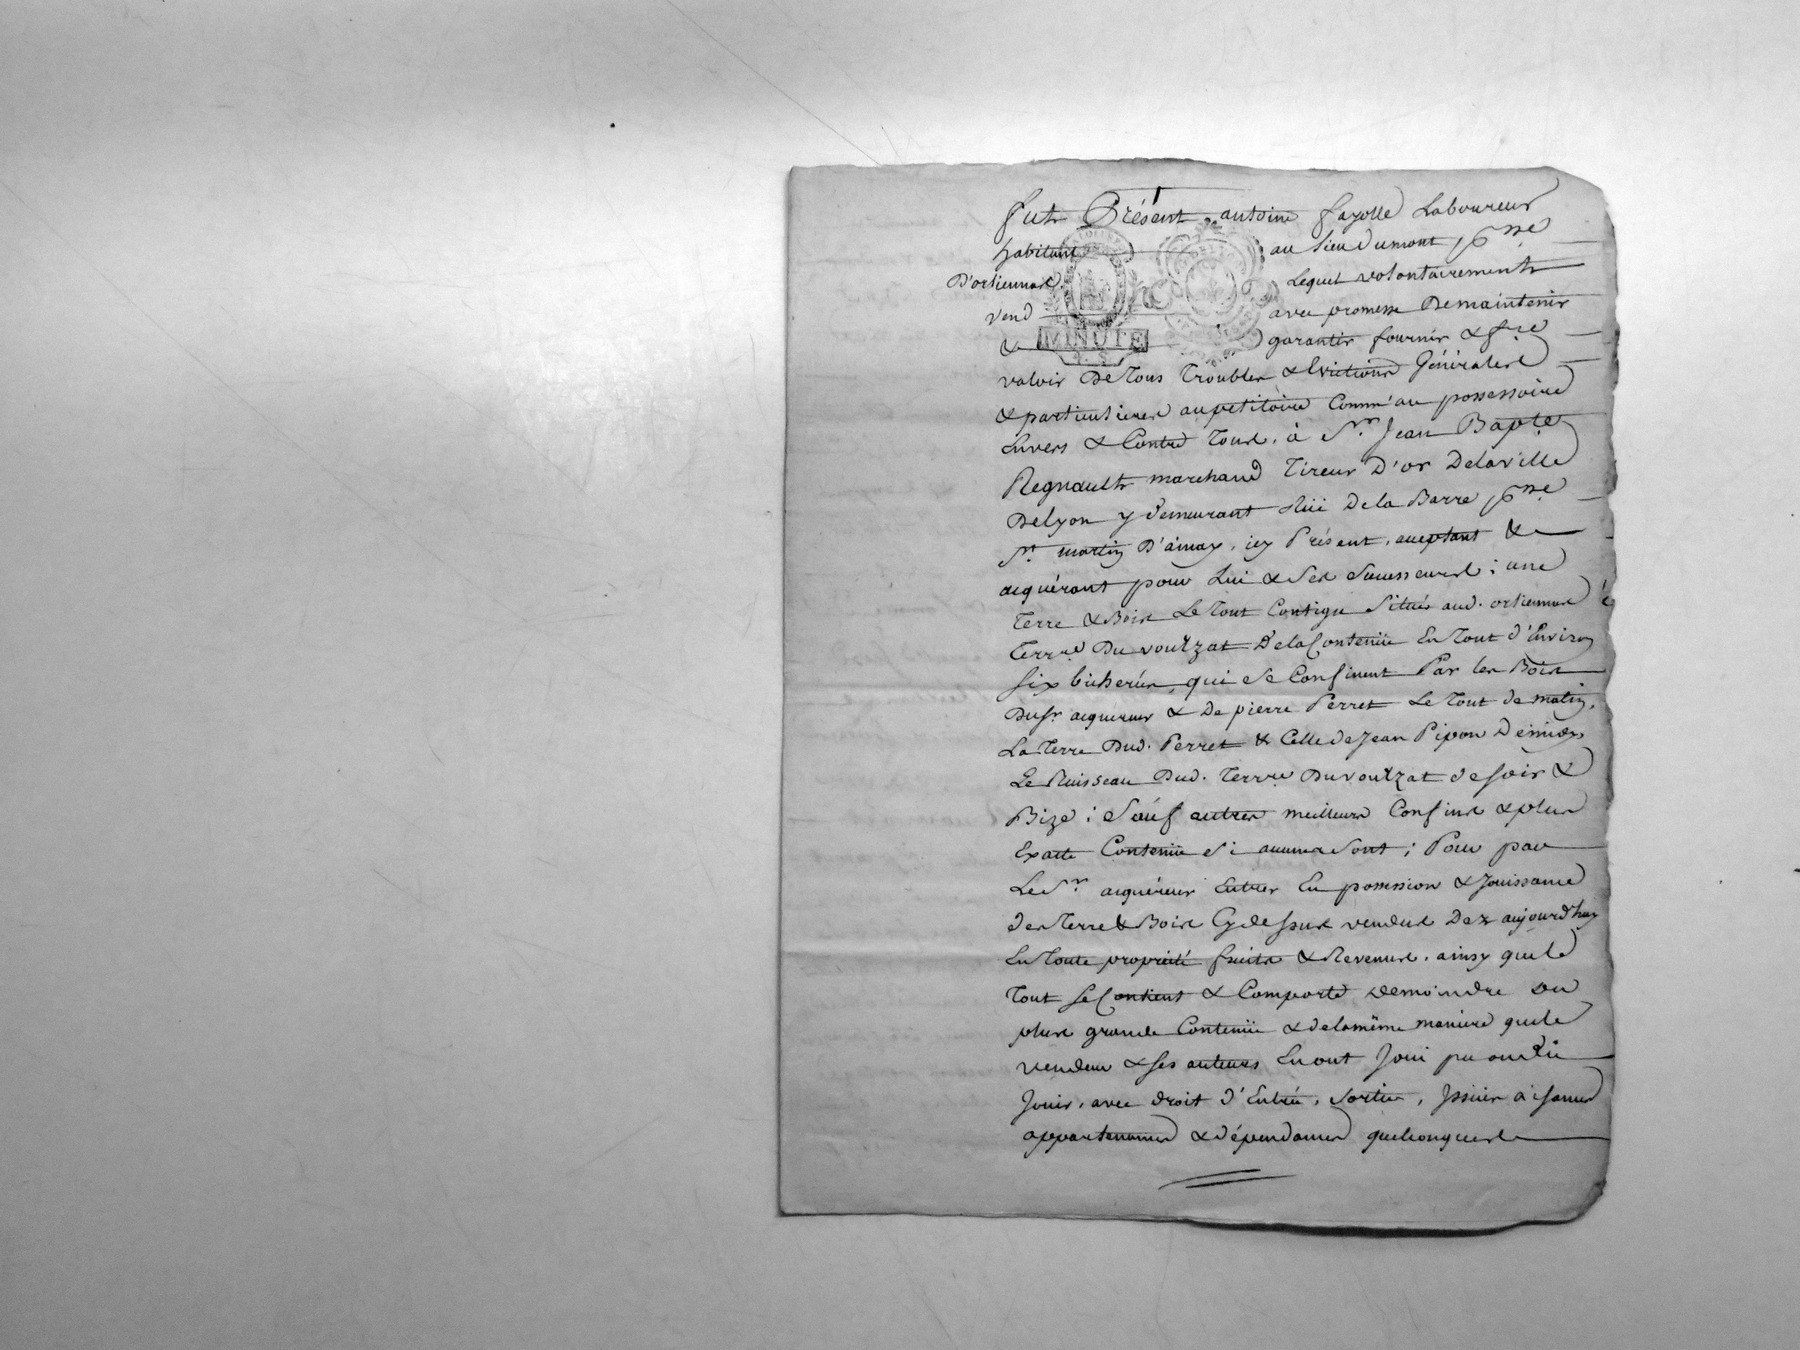 Fut Présent antoine fayolle Laboureur
habitant au lieu dumont psse
D'orlienas Lequel volontairement
vend avec promesse Demaintenir
MINUTE
& garantir fournir & fre
valoir De tous Troubles & Evictions Générales
& particulieres aupetitoire Comm'au possessoire
Envers & Contre Tous, à Sr. Jean Bapte
Regnault marchand Tireur D'or Delaville
Delyon y demeurant Rüe Dela Barre psse
St martin D'ainay, icy Présent, acceptant &
acquérant pour Lui & Ses Successeurs; une
Terre & Bois Le Tout Contigu Situés aud. orlienas
Terrre Du voulzat Dela Contenüe En Tout d'Environ
Six bicherées, qui Se Confinent Par les Bois
Dusr acquereur & De pierre Perret Le Tout de matin,
La Terre Dud. Perret & Celle de Jean Pipon Demidy,
Le Ruisseau Dud. Terrre Du voulzat de soir &
Bize; Sauf autres meilleurs Confins & plus
Exacte Contenüe Si aucuns Sont; Pour par
Le Sr acquéreur Entrer En possession & Jouissance
des Terre & Bois Cydessus vendus Dez aujourd'huy
En Toute propriété fruits & Revenus, ainsy que le
Tout se Contient & Comporte demoindre ou
plus grande Contenüe & delamême maniere quele
vendeur & ses auteurs En ont Joui pu ou dû
Jouir, avec droit d'Entrée, Sortie, Issües aisances
appartenances & dépendances quelconques